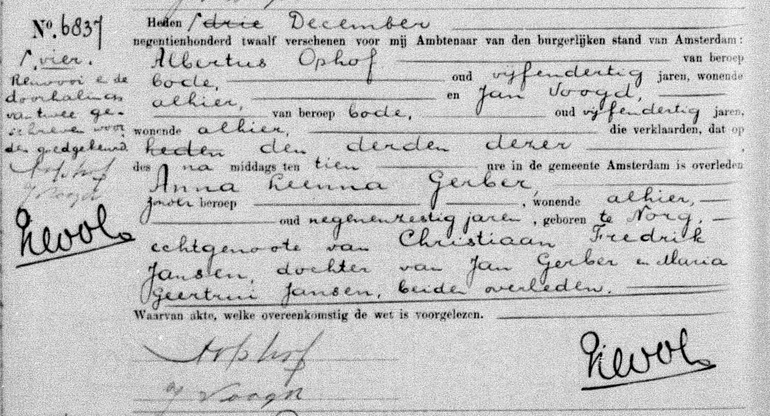 No. 6837
Heden drie December
negentienhonderd twaalf verschenen voor mij Ambtenaar van den burgerlijken stand van Amsterdam:
Albertus Ophof van beroep
bode, oud vijfendertig jaren, wonende
alhier, en Jan Voogd,
van beroep bode, oud vijfendertig jaren,
wonende alhier, die verklaarden, dat op
heden den derden dezer
des na middags ten tien ure in de gemeente Amsterdam is overleden
Anna Leenna Gerber,
zonder beroep, wonende alhier,
oud negenenzestig jaren, geboren te Norg,
echtgenoote van Christiaan Fredrik
Jansen, dochter van Jan Gerber en Maria
Geertrui Jansen, beiden overleden.
Waarvan akte, welke overeenkomstig de wet is voorgelezen.
Aophof
J Voogd
vier.
Renvooi en de
doorhaling
van twee ge-
schreven woor
den goedgekeurd
Aophof
J Voogd